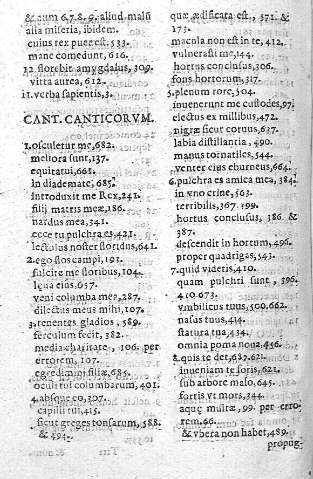 & cum 6.7.8.9. aliud malū
alia miseria, ibidem.
cuius rex puer est. 533.
mane comedunt, 616.
12. florebit amygdalus, 309.
vitta aurea, 612.
11. verba sapientis, 3.
CANT. CANTICORVM.
1. osculetur me, 682.
meliora sunt, 137.
equitatui, 661.
in diademate, 685.
introduxit me Rex, 241.
filij matris meæ, 186.
nardus mea, 341.
ecce tu pulchra es, 421.
lectulus noster floridus, 641.
2. ego flos campi, 193.
fulcite me floribus, 104.
leua eius, 657.
veni columba mea, 287.
dilectus meus mihi, 107.
3. tenentes gladios, 589.
ferculum fecit, 382.
media charitate, 106. per
errorem, 107.
egredimini filiæ, 685.
oculi tui columbarum, 401.
4. absque eo, 307.
capilli tui, 415.
sicut greges tonsarum, 588.
& 494.
quæ ædificata est, 571. &
173.
macula non est in te, 412.
vulnerasti me, 144.
hortus conclusus, 306.
fons hortorum, 317.
5. plenum rore, 504.
inuenerunt me custodes, 97.
electus ex millibus, 472.
nigræ sicut coruus, 637.
labia distillantia, 490.
manus tornatiles, 544.
venter eius eburneus, 664.
6. pulchra es amica mea, 384.
in vno crine, 563.
terribilis, 367. 599.
hortus conclusus, 386. &
387.
descendit in hortum, 496.
proper quadrigas, 543.
7. quid videris, 410.
quam pulchri sunt, 396.
410. 673.
vmbilicus tuus, 500. 662.
nasus tuus, 414.
statura tua, 434.
omnia poma noua, 456.
8. quis te det, 687. 621.
inueniam te foris, 621.
sub arbore malo, 645.
fortis vt mors, 344.
aquę multæ, 99. per erro-
rem. 66.
& vbera non habet, 489.
propug-